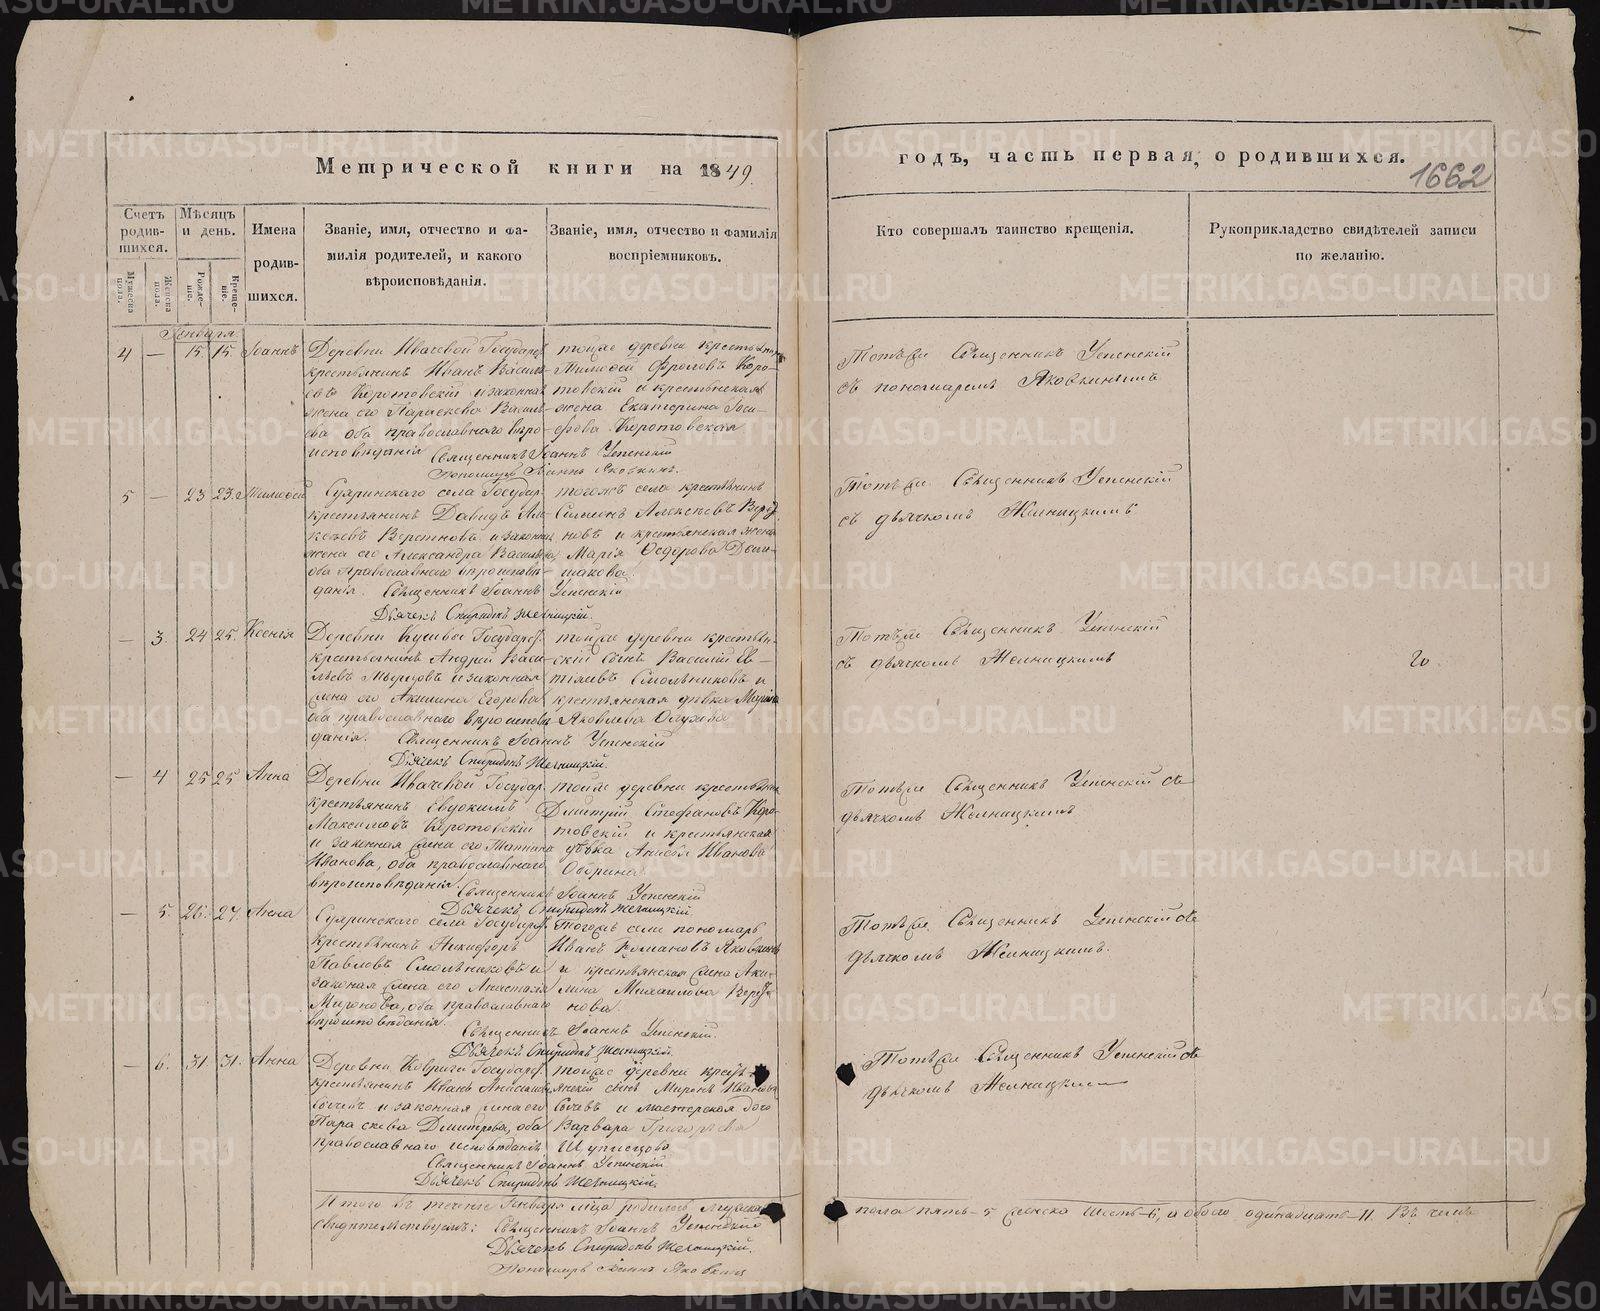 Метрической книги на 1849
годъ, часть первая, о родившихся.
1662
Счетъ родив-шихся.
Мѣсяцъ и день.
Имена родив-шихся.
Званіе, имя, отчество и фа-
милія родителей, и какого
вѣроисповѣданія.
Званіе, имя, отчество и фамилія
воспріемниковъ.
Кто совершалъ таинство крещенія.
Рукоприкладство свидѣтелей записи
по желанію.
Мужеска пола.
Женска пола.
Рожде-ніе.
Креще-ніе.
Января
4 — 15 15 Іоаннъ
Деревни Ивачевой Государ
крестьянинъ Иванъ Василь-
Коротовскій и законная
жена его Параскева Василь-
ева оба православнаго вѣро-
исповѣданія
тойже деревни крестьянинъ
Тимофей Фроловъ Коро-
товскій и крестьянская
жена Екатерина Іоси-
фова Коротовская
Священникъ Іоаннъ Успенскій
Пономарь Іоаннъ Яковкинъ.
Тотъже Священникъ Успенскій
съ пономаремъ Яковкинымъ
5 — 23 23 Тимофей
села Государ
крестьянинъ Давидъ Але-
ксѣевъ и законная
жена его Александра Василь
оба Православнаго вѣроисповѣ-
данія.
тогожъ села крестьянинъ
Симеонъ Алексѣевъ
новъ и крестьянская жена
Марія Ѳедорова
Священникъ Іоаннъ Успенскій
Дьячекъ Спиридонъ Желницкій.
Тотъже Священникъ Успенскій
съ дьячкомъ Желницкимъ
— 3. 24 25. Ксенія
Деревни Государ
крестьянинъ Андрей Васи-
льевъ и законная
жена его Акилина Егорова
оба православнаго вѣроиспов
данія.
тойже деревни крестьян-
скій сынъ Василій Ев-
Смольниковъ и
крестьянская дѣвка
Яковлева
Священникъ Іоаннъ Успенскій
Дьячекъ Спиридонъ Желницкій.
Тотъже Священникъ Успенскій
съ дьячкомъ Желницкимъ
— 4 25 25 Анна
Деревни Ивачевой Государ
крестьянинъ Евдокимъ
Максимовъ Коротовскій
и законная жена его Татіана
Иванова, оба православнаго
вѣроисповѣданія.
тойже деревни крестьянинъ
Дмитрій Стефановъ Коро-
товскій и крестьянская
дѣвка Анисья Иванова
Священникъ Іоаннъ Успенскій
Дьячекъ Спиридонъ Желницкій
Тотъже Священникъ Успенскій съ
дьячкомъ Желницкимъ
— 5. 26. 27. Анна
села Государ
крестьянинъ Никифоръ
Павловъ Смольниковъ и
законая жена его Анастасія
Миронова, оба православнаго
вѣроисповѣданія.
Тогожъ села пономарь
Иванъ Романовъ Яковкинъ
и крестьянская жена Аки-
лина Михаилова
нова
Священникъ Іоаннъ Успенскій.
Дьячекъ Спиридонъ Желницкій.
Тотъже Священникъ Успенскій съ
дьячкомъ Желницкимъ.
— 6. 31. 31. Анна
Деревни Государ
крестьянинъ Иванъ
и законная жена его
Параскева Дмитріева, оба
православнаго исповѣданія
тойже деревни кресть-
янскій сынъ Миронъ Ивановъ
и мастерская дочь
Варвара Григорьева
Священникъ Іоаннъ Успенскій
Дьячекъ Спиридонъ Желницкій.
Тотъже Священникъ Успенскій съ
дьячкомъ Желницкимъ
Итого въ теченіе Генваря мца родилось мужеска
пола пять - 5 женска шесть - 6, а обоего одинадцать - 11. Въ чемъ
свидѣтельствуемъ: Священникъ Іоаннъ Успенскій
Дьячекъ Спиридонъ Желницкій.
Пономарь Іоаннъ Яковкинъ
METRIKI.GASO-URAL.RU